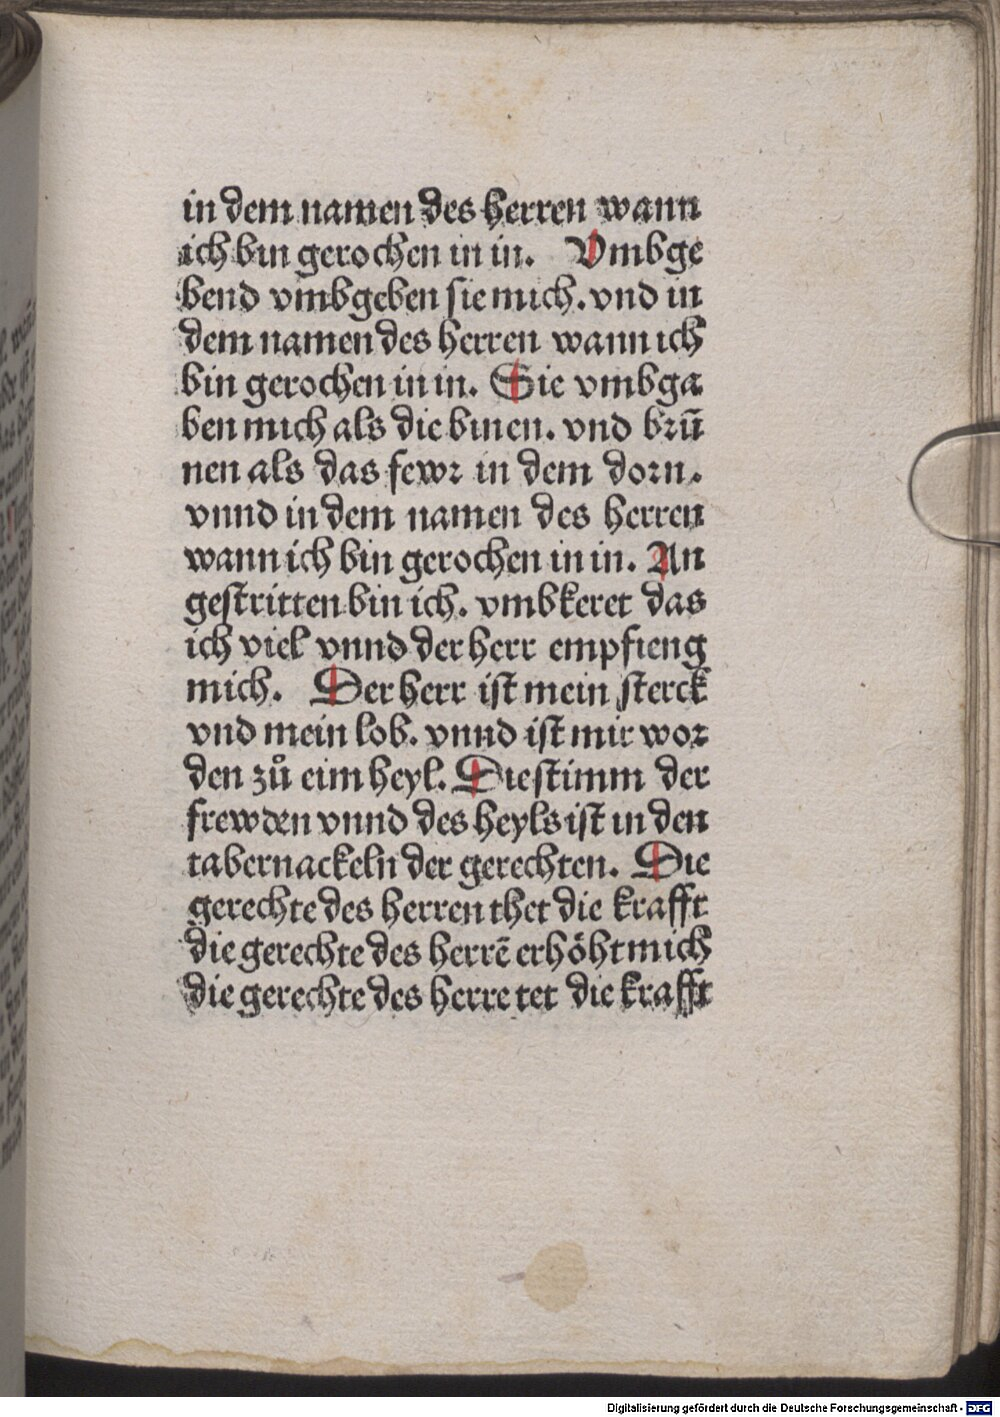 in dem namen des herren wann
ich bin gerochen in in. Vmbge
bend vmbgeben sie mich. vnd in
dem namen des herren wann ich
bin gerochen in in. Sie vmbga
ben mich als die binen. vnd brū
nen als das fewr in dem dorn.
vnnd in dem namen des herren
wann ich bin gerochen in in. An
gestritten bin ich. vmbkeret das
ich viel vnnd der herr empfieng
mich. Der herr ist mein sterck
vnd mein lob. vnnd ist mir wor
den zů eim heyl. Die stimm der
frewden vnnd des heyls ist in den
tabernackeln der gerechten. Die
gerechte des herren thet die krafft
die gerechte des herrē erhöht mich
die gerechte des herre tet die krafft
Digitalisierung gefördert durch die Deutsche Forschungsgemeinschaft - DFG